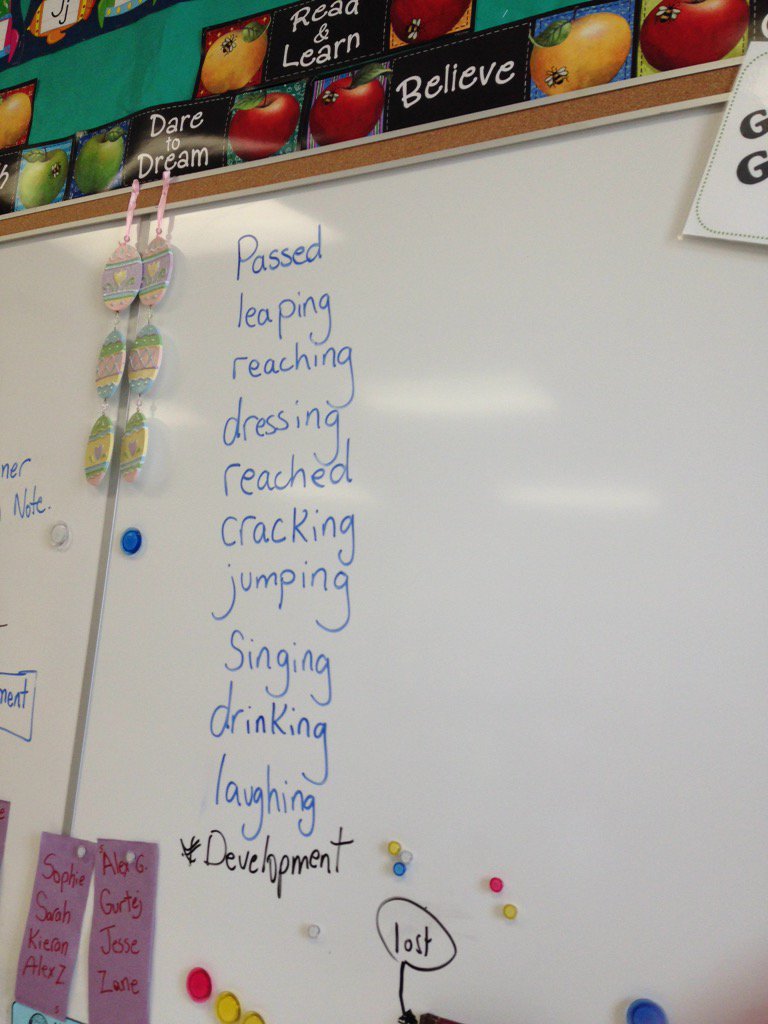 Jj
Read
&
Learn
Believe
Dare
to
Dream
Passed
leaping
reaching
dressing
reached
cracking
jumping
Singing
drinking
laughing
Development
Note.
Sophie
Sarah
Kieran
Alex Z
Alex G.
Gurtej
Jesse
Zane
lost